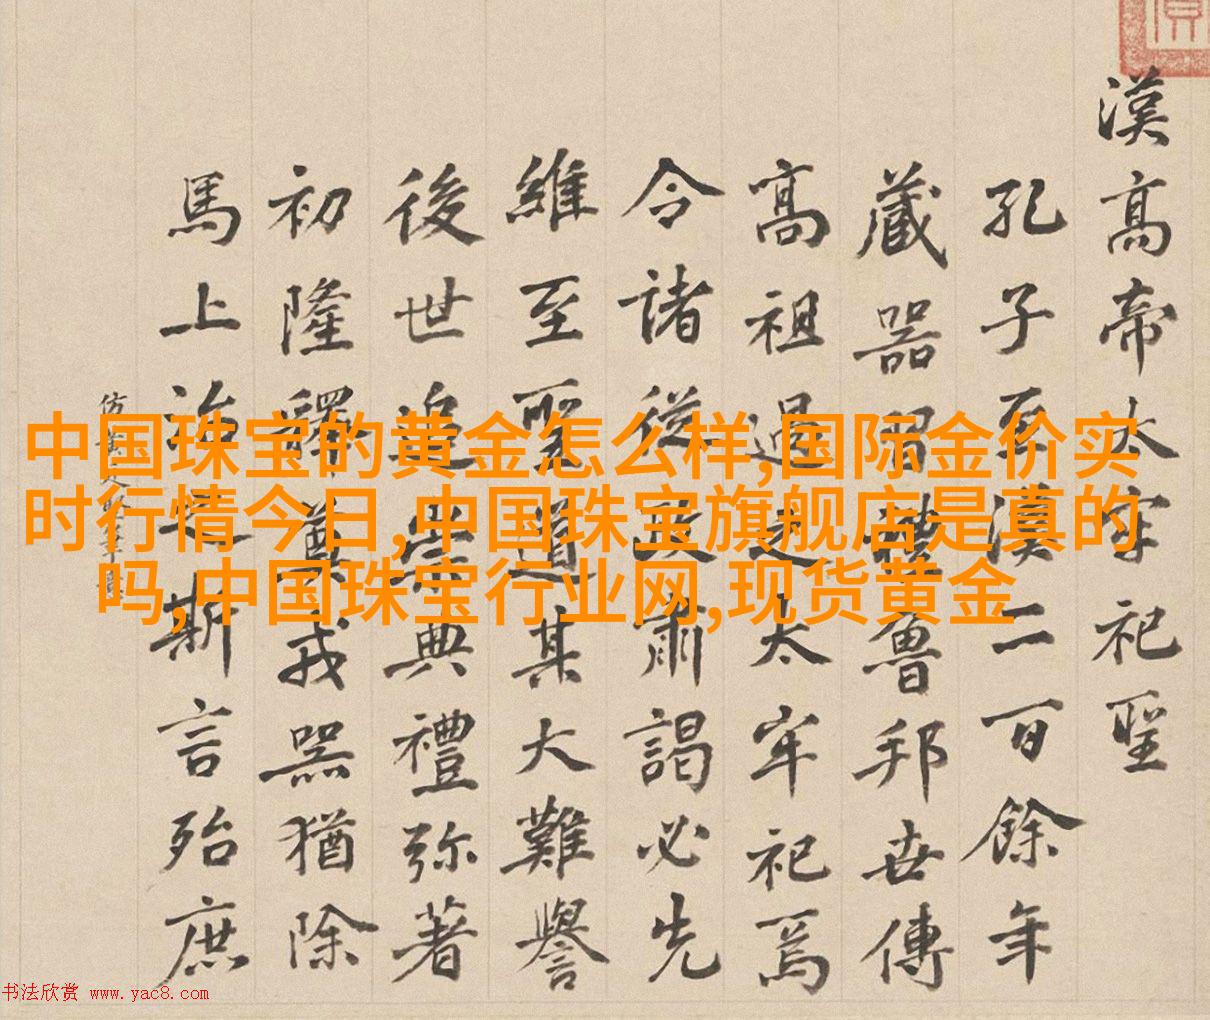 中国珠宝的黄金怎么样,国际金价实
时行情今日,中国珠宝旗舰店是真的
吗,中国珠宝行业网,现货黄金
漢高帝太牢祀聖
孔子至漢二百餘年
藏器習禮魯邦世傳
高祖過之太牢祀焉
令諸從政肅謁必先
維至聖道其大難譽
後世追崇典禮弥著
初隆釋戎器猶除
馬上治斯言殆庶
仿
书法欣赏 www.yac8.com